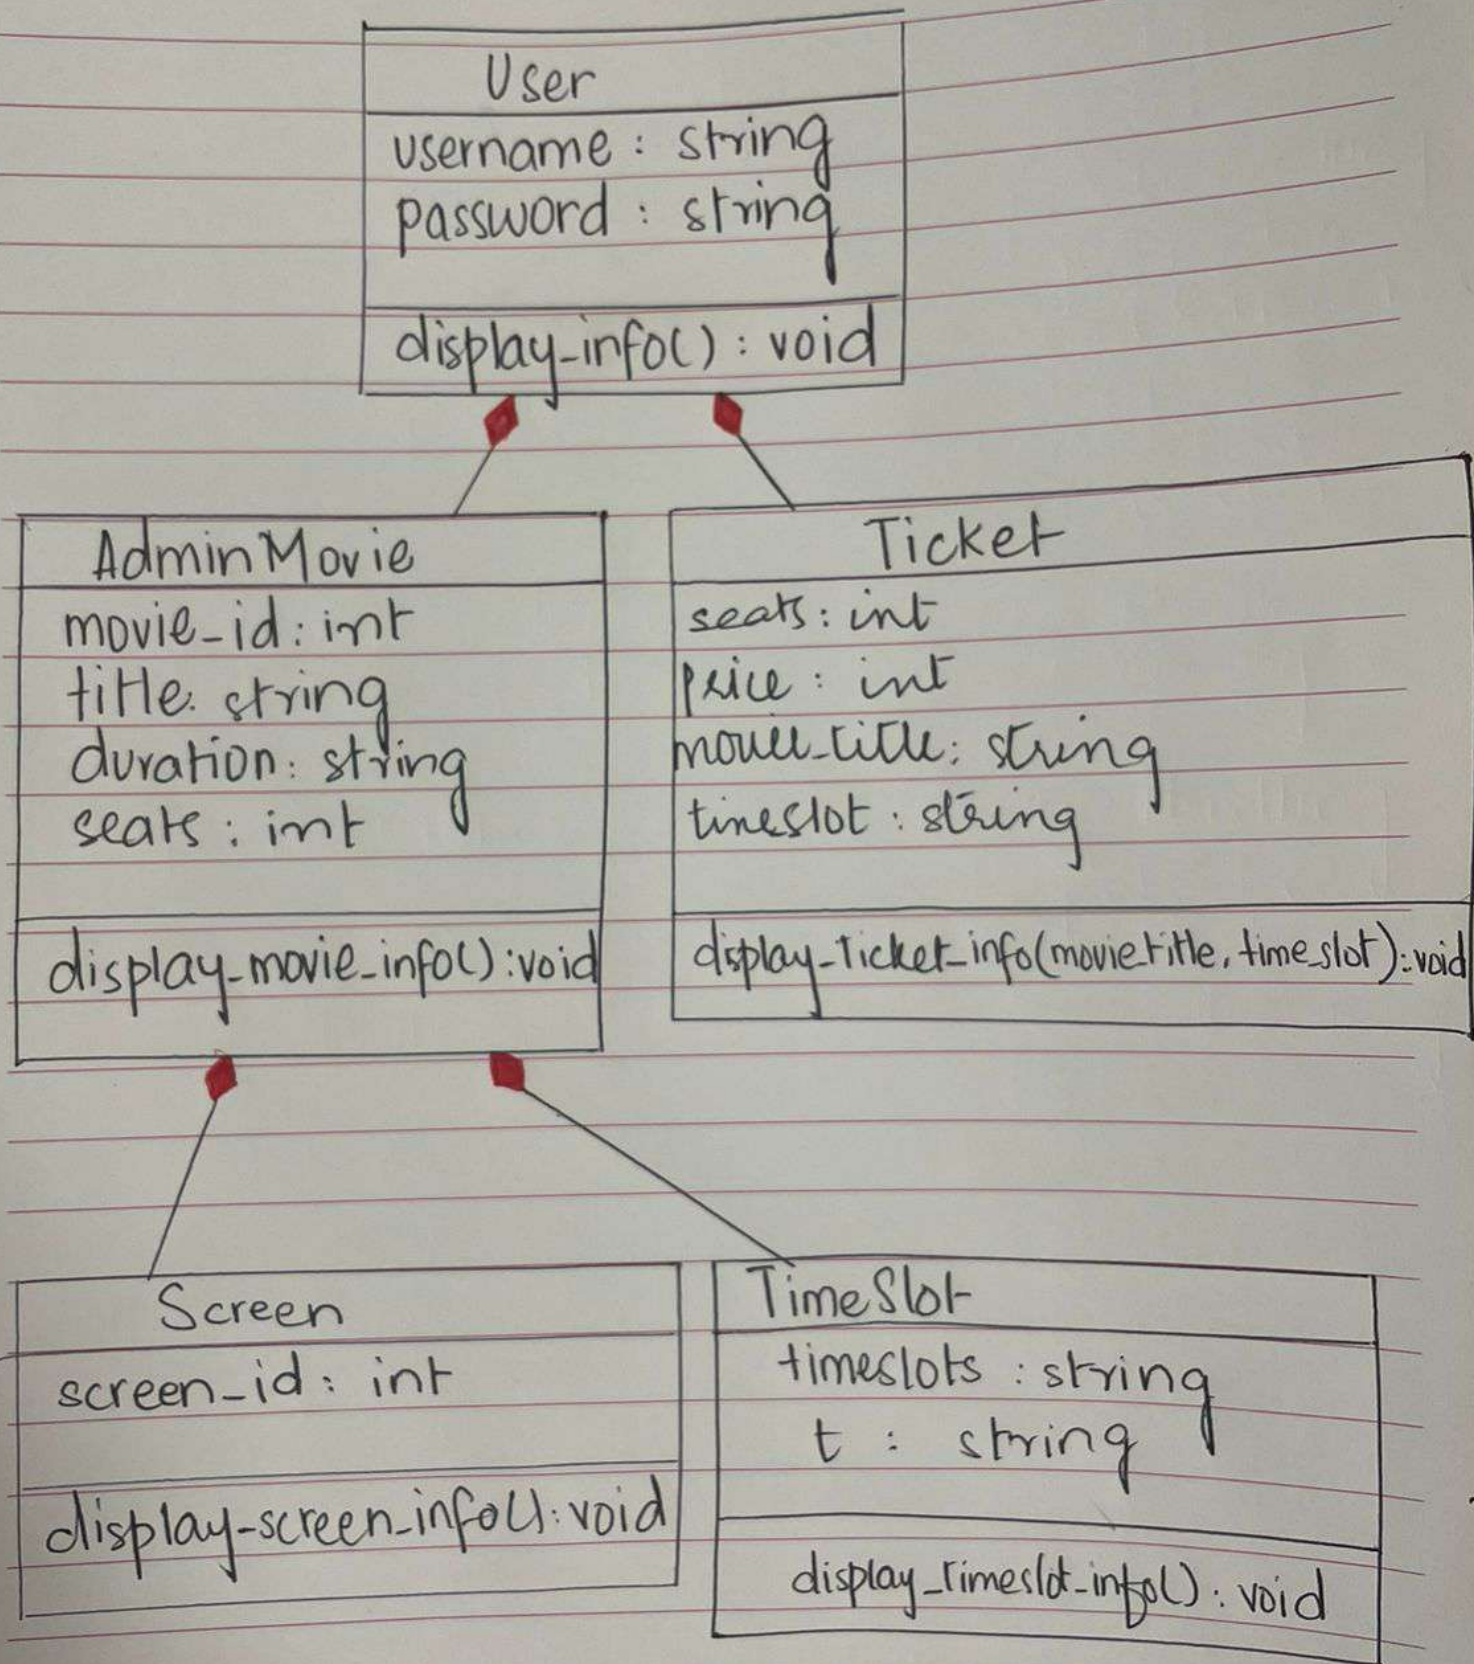 User
username : string
password : string
display_info() : void
AdminMovie
movie_id : int
title : string
duration : string
seats : int
display_movie_info() : void
Ticket
seats : int
price : int
movie_title : string
timeslot : string
display_Ticket_info(movietitle, time_slot) : void
Screen
screen_id : int
display_screen_info() : void
TimeSlot
timeslots : string
t : string
display_timeslot_info() : void